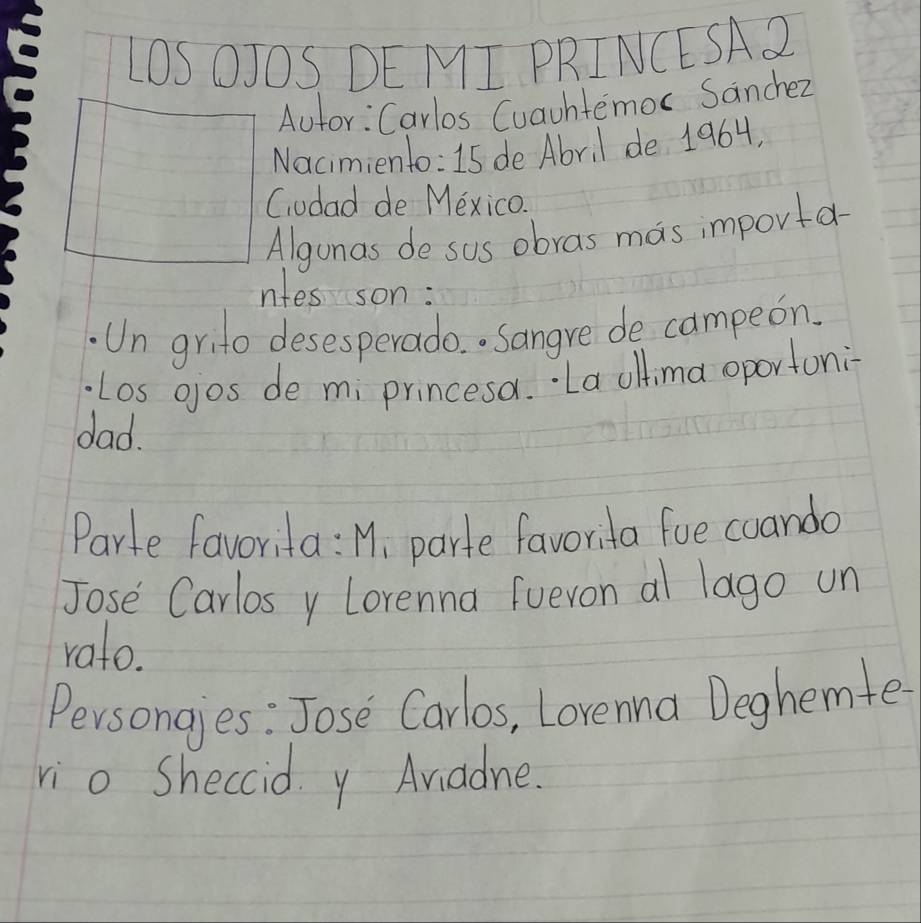 LOS OJOS DE MI PRINCESA 2
Autor: Carlos Cuauhtémoc Sánchez
Nacimiento: 15 de Abril de 1964,
Ciudad de México.
Algunas de sus obras más importa-
ntes son:
·Un grito desesperado. ·Sangre de campeón.
·Los ojos de mi princesa. ·La ultima oportuni-
dad.
Parte favorita: Mi parte favorita fue cuando
José Carlos y Lorenna fueron al lago un
rato.
Personajes: José Carlos, Lorenna Deghemte-
ri o Sheccid. y Ariadne.